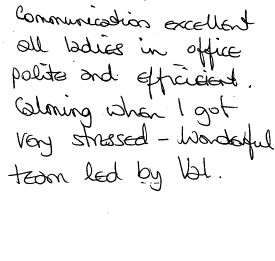 Communication excellent
all ladies in office
polite and efficient.
Calming when I got
very stressed – Wonderful
team led by Val.